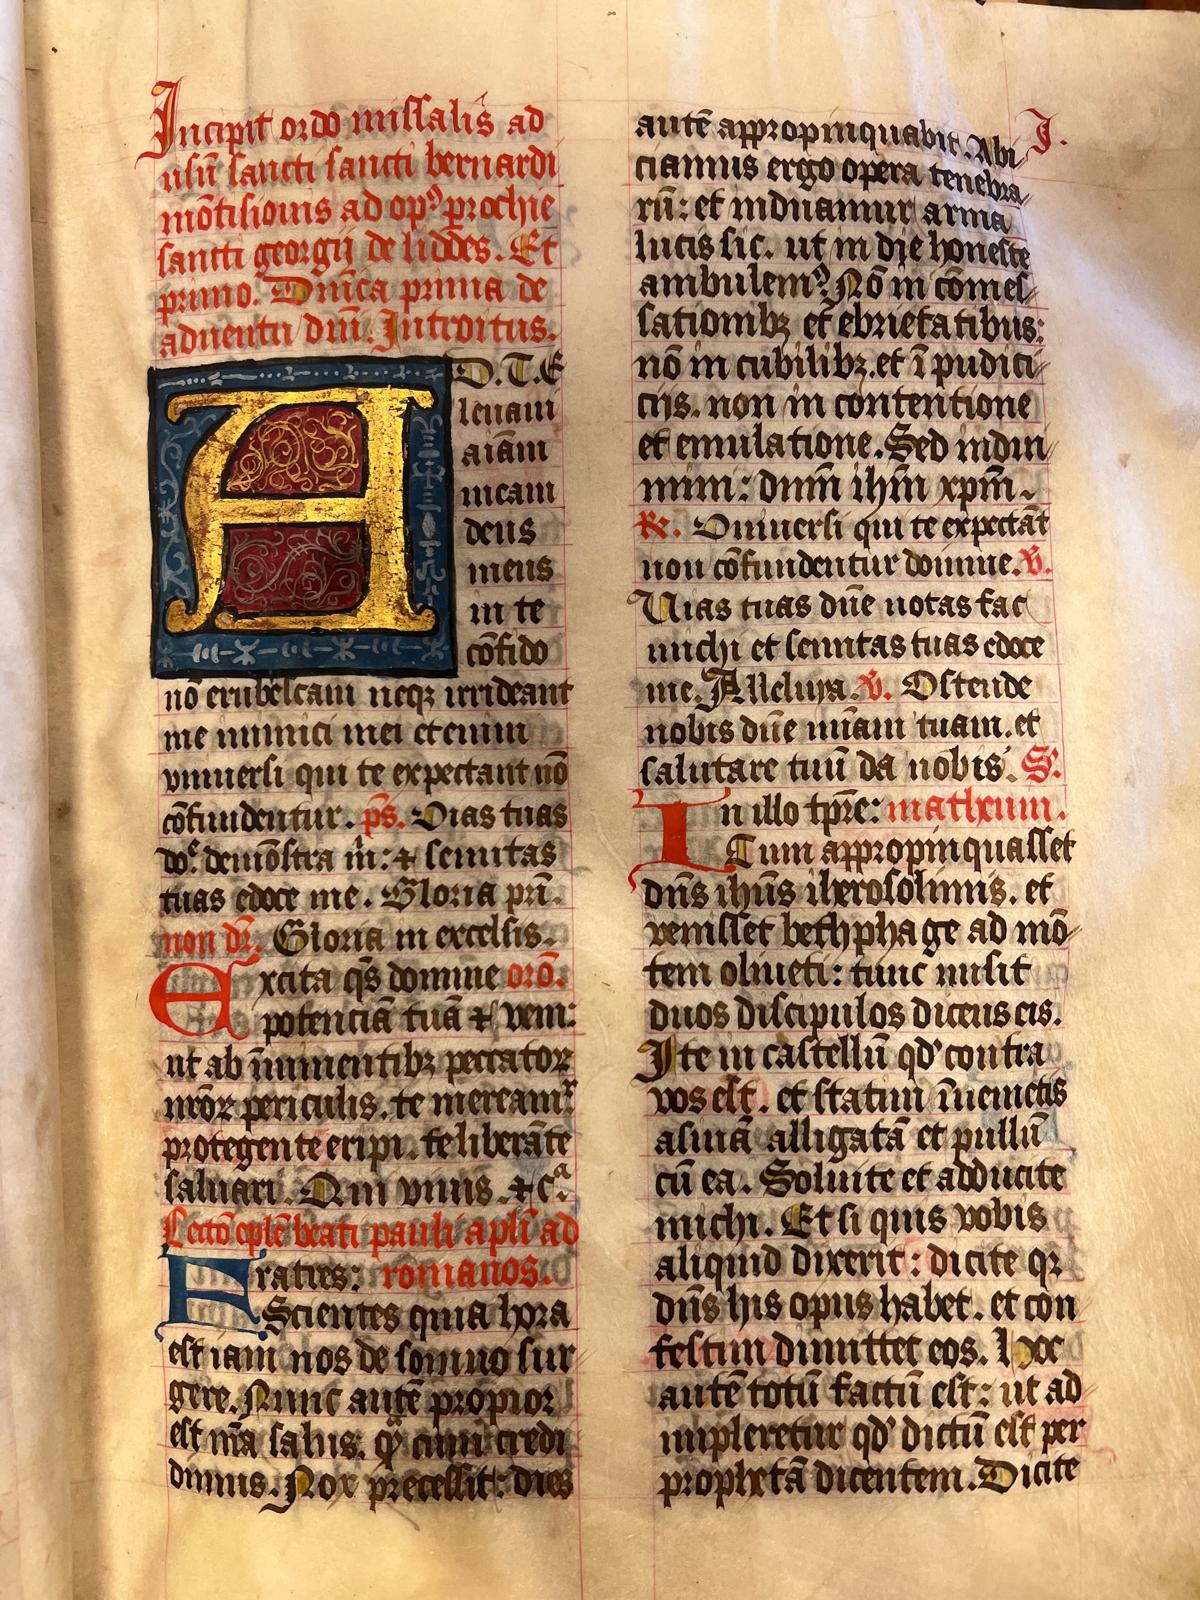 Incipit ordo missalis ad
usū sancti sancti bernardi
mōtisiouis ad opꝰ prochie
sancti georgij de liddes. Et
primo. Dn̄ica prima de
aduentu dn̄i. Introitus.
AD. T. E
leuaui
aīam
meam
deus
meus
in te
cōfido
nō erubescam neqꝫ irrideant
me inimici mei etenim
vniuersi qui te expectant nō
cōfundentur. ps. Uias tuas
dō. demōstra m̄: ⁊ semitas
tuas edoce me. Gloria pr̄i.
non dr̄. Gloria in excelsis.
Excita q̄s domine orō.
potenciā tuā ⁊ veni:
ut ab īminentibꝫ peccatoꝝ
nr̄oꝝ periculis. te mereamʳ
protegente eripi. te liberāte
saluari. Qui viuis. ⁊ cᵃ.
Lectō eplē beati pauli apli ad
Fratres: romanos.
Scientes quia hora
est iam nos de somno sur
gere. Nunc autē propior
est nr̄a salus. qᵃ cum credi
dimus. Nox precessit: dies
autē appropinquabit. Abi I.
ciamus ergo opera tenebra
rū: et induamur arma
lucis sic. ut in die honeste
ambulemꝰ. Nō in cōmes
sationibꝫ et ebrietatibus:
nō in cubilibꝫ. et īpudici
ciis. non in contentione
et emulatione. Sed indui
mini: dn̄m ihm̄ xpm̄.
Re. Uniuersi qui te expectāt
non cōfundentur domine. V.
Uias tuas dn̄e notas fac
michi et semitas tuas edoce
me. Alleluya. V. Ostende
nobis dn̄e mīam tuam. et
salutare tuū da nobis. S.
In illo tpr̄e: matheum.
Cum appropinquasset
dn̄s ihūs iherosolimis. et
venisset bethphage ad mō
tem oliueti: tunc misit
duos discipulos dicens eis.
Ite in castellū qd' contra
vos est. et statim īuenietis
asinā alligatā et pullū
cū ea. Soluite et adducite
michi. Et si quis vobis
aliquid dixerit: dicite qꝛ
dn̄s his opus habet. et con
festim dimittet eos. Hoc
autē totū factū est: ut ad
impleretur qd' dictū est per
prophetā dicentem. Dicite